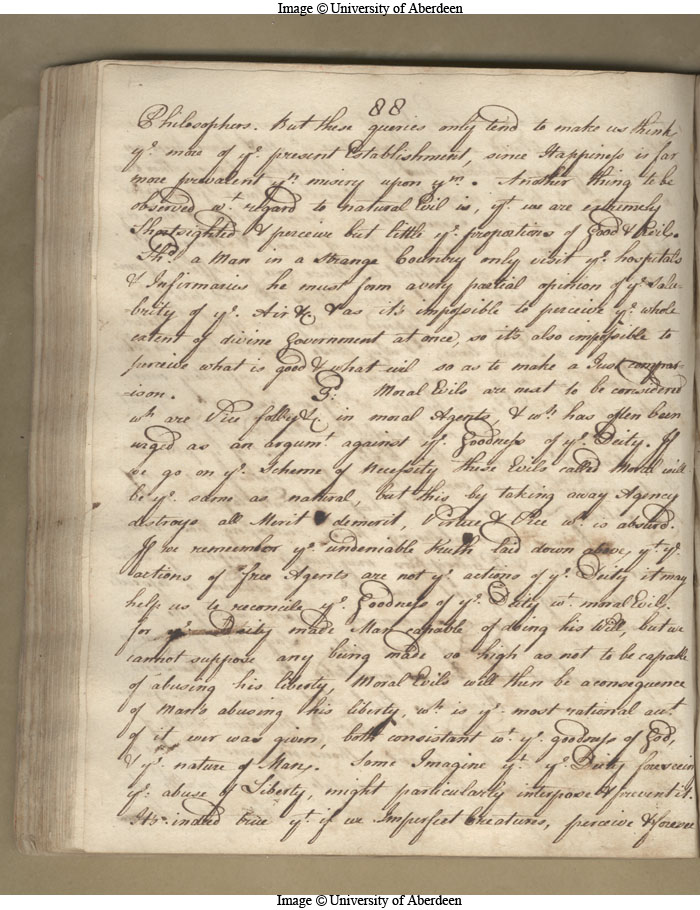 Image © University of Aberdeen
88
Philosophers. But these queries only tend to make us think
ye. more of ye. present Establishment, since Happiness is far
more prevalent yn. misery upon ym. Another thing to be
observed wt. regard to natural Evil is, yt. we are extremely
Shortsighted & perceive but little ye. proportions of Good & Evil.
Thd. a Man in a Strange Country only visit ye. hospitals
& Infirmaries he must form a very partial opinion of ye. Salu-
brity of ye. Air &c & as it's impossible to perceive ye. whole
extent of divine Government at once, so it's also impossible to
perceive what is good & what evil so as to make a Just compar-
ison. Moral Evils are next to be considered
wh. are Vice folly &c in moral Agents, & wh. has often been
urged as an argumt. against ye. Goodness of ye. Deity. If
we go on ye. Scheme of Necessity these Evils called Moral will
be ye. same as natural, but this by taking away Agency
destroys all Merit & demerit, Virtue & Vice wh. is absurd.
If we remember ye. undeniable truth laid down above, yt. ye.
actions of free Agents are not ye. actions of ye. Deity it may
help us to reconcile ye. Goodness of ye. Deity wt. moral Evil.
for ye. Deity made Man capable of doing his Will, but we
cannot suppose any being made so high as not to be capable
of abusing his liberty, Moral Evils will then be a consequence
of Man's abusing his liberty, wh. is ye. most rational acct.
of it ever was given, both consistant wt. ye. goodness of God,
& ye. nature of Man. Some Imagine yt. ye. Deity foreseeing
ye. abuse of Liberty, might particularly interpose & prevent it.
It's indeed true yt. if we Imperfect Creatures, perceive &
Image © University of Aberdeen